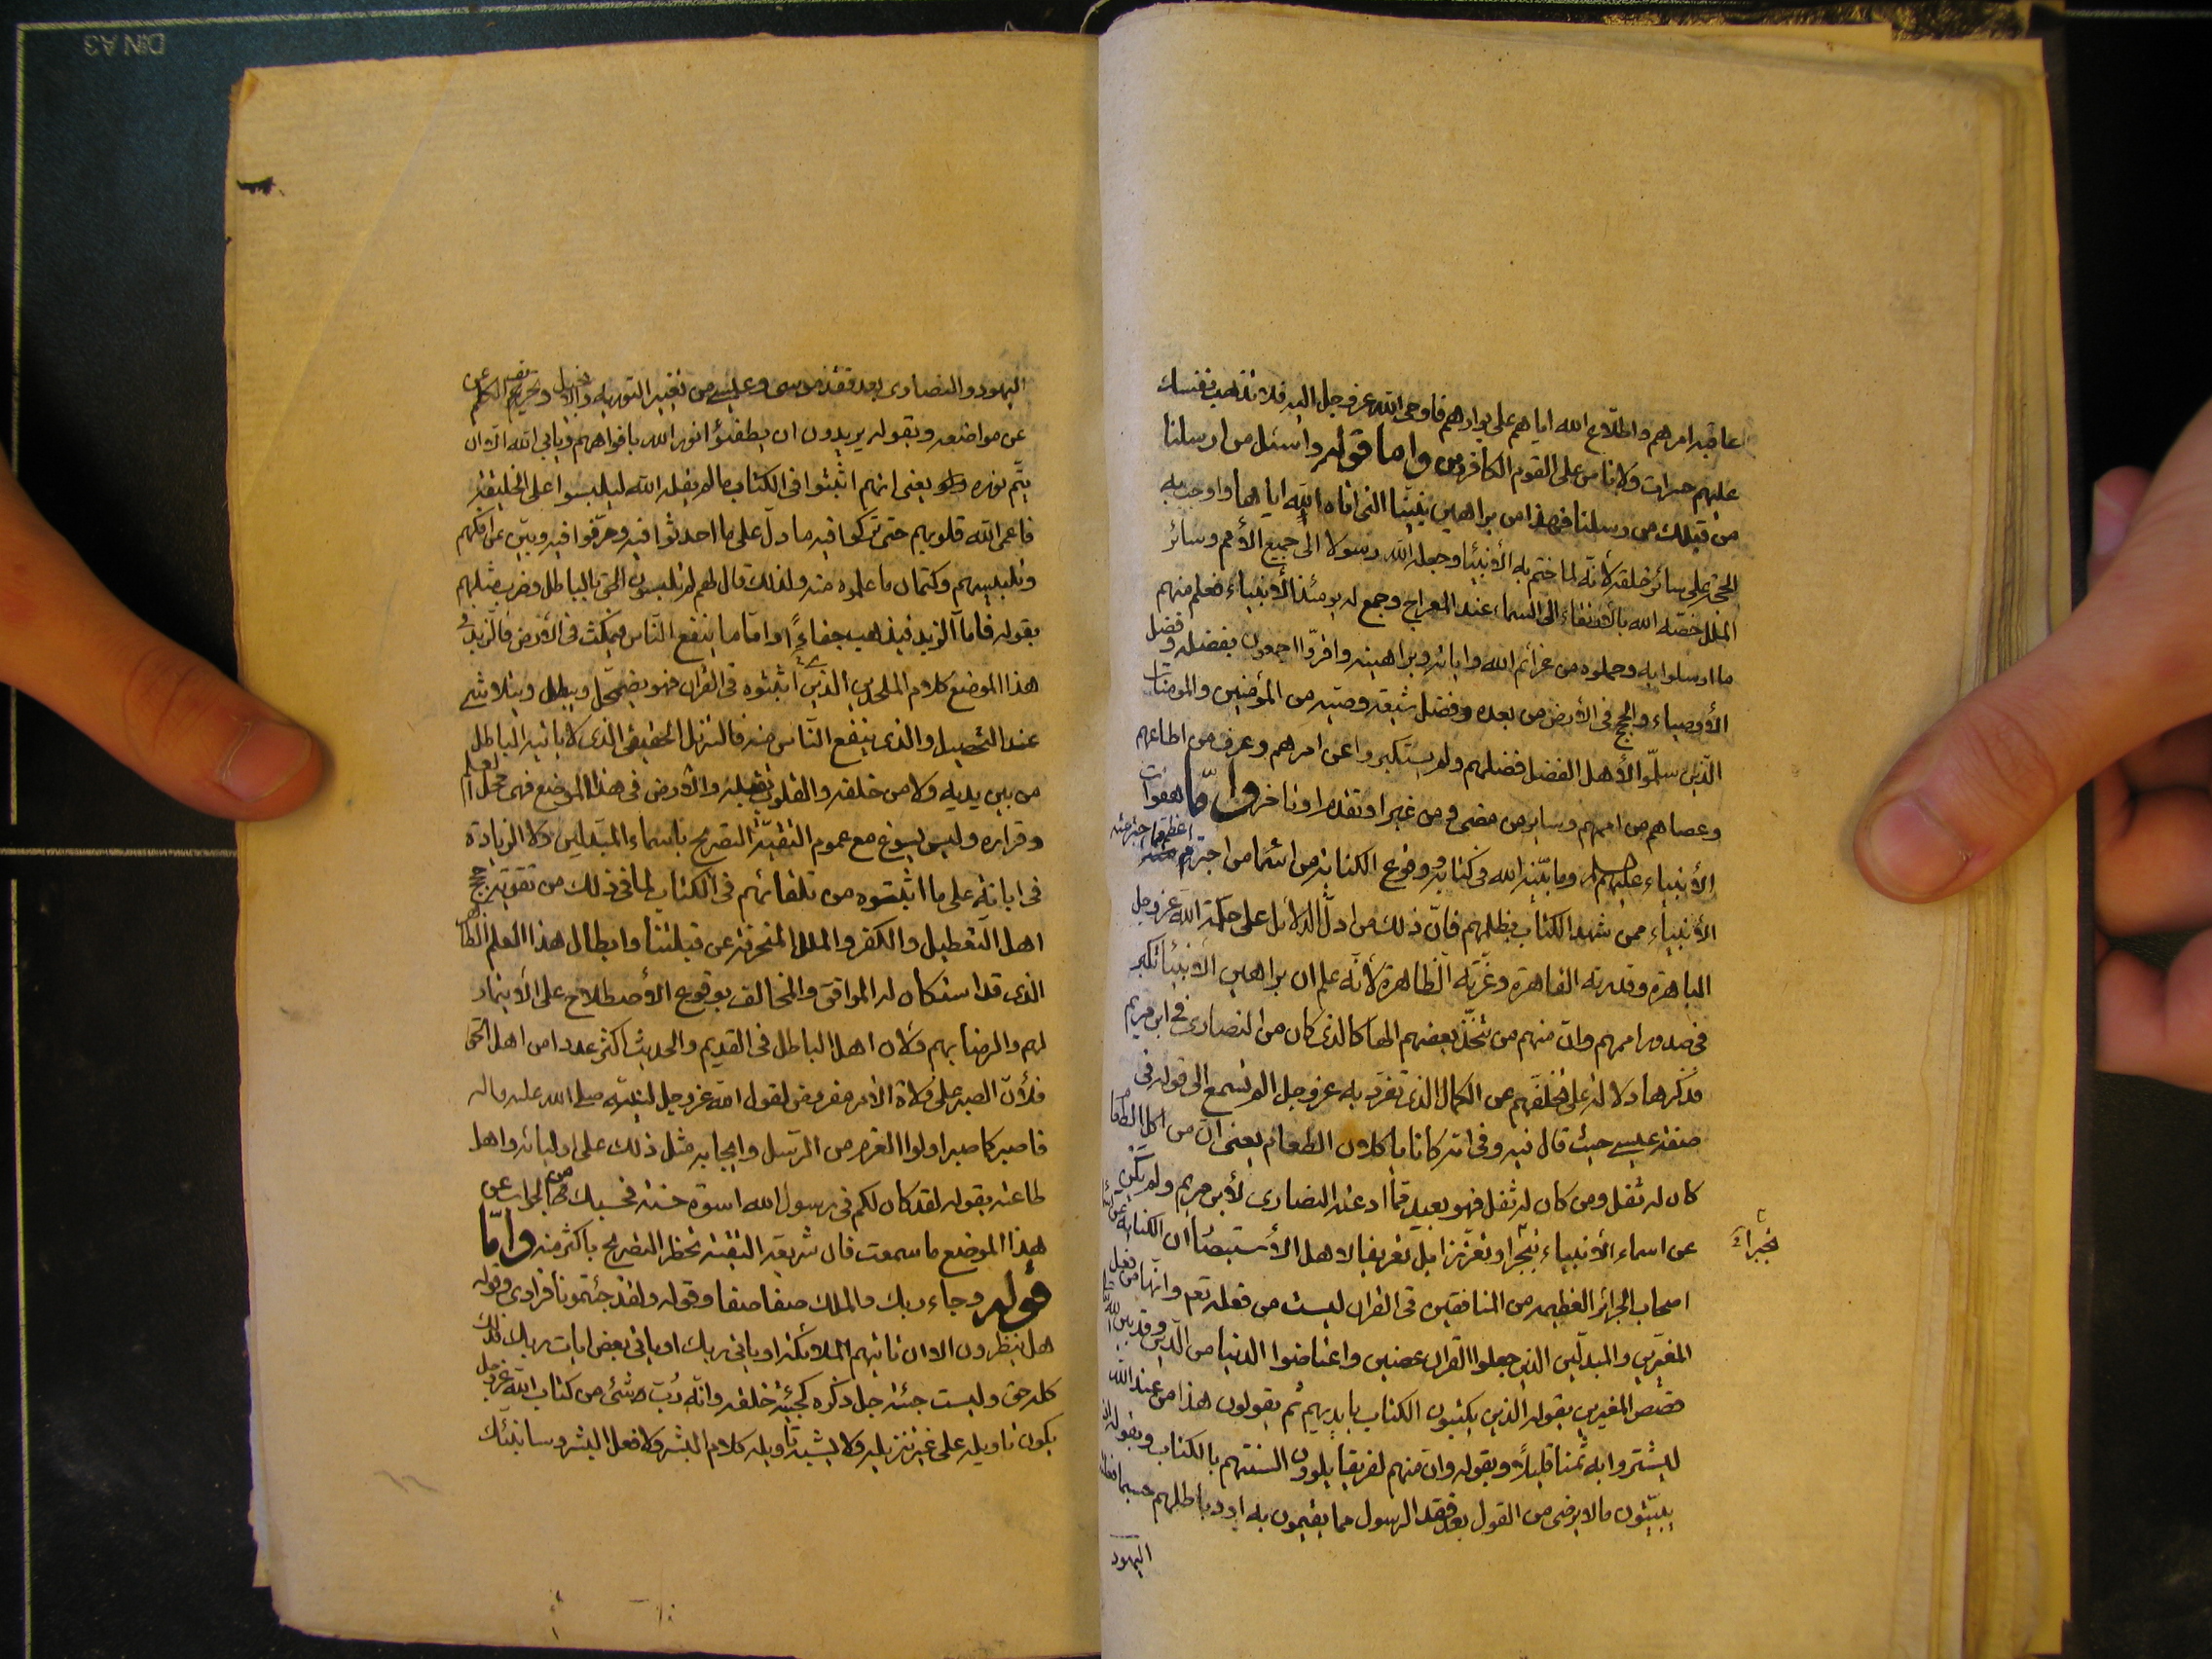 عاقبة امرهم واطلاع الله اياهم على بوارهم فاوحى الله عز وجل اليه فلا تذهب نفسك
عليهم حسرات ولا تاس على القوم الكافرين واما قوله واسئل من ارسلنا
من قبلك من رسلنا فهذا من براهين نبينا التى اتاه الله اياها واوجب به
الحجة على سائر خلقه لانه لما ختم به الأنبياء وجعله الله رسولا الى جميع الأمم وسائر
الملل خصه الله بالأرتقاء الى السماء عند المعراج وجمع له يومئذ الأنبياء فعلم منهم
ما ارسلوا به وحملوه من عزائم الله واياته وبراهينه واقروا اجمعون بفضله وفضل
الأوصياء والحجج فى الأرض من بعده وفضل شيعة وصيه من المؤمنين والمومنات
الذين سلموا لأهل الفضل فضلهم ولم يستكبروا عن امرهم وعرف من اطاعهم
وعصاهم من اممهم وساير من مضى ومن غبر او تقدم او تاخر واما هفوات
الأنبياء عليهم السلم وما بينه الله فى كتابه ووقوع الكناية من اسماء من اجترم اعظم مما اجترمته
الأنبياء ممن شهد الكتاب بظلمهم فان ذلك من ادل الدلائل على حكمة الله عز وجل
الباهرة وقدرته القاهرة وعزته الظاهرة لأنه علم ان براهين الأنبياء تكبر
فى صدور اممهم وان منهم من يتخذ بعضهم الها كالذى كان من النصارى فى ابن مريم
فذكرها دلالة على تخلفهم عن الكمال الذى تفرد به عز وجل الم تسمع الى قوله فى
صفة عيسى حيث قال فيه وفى امه كانا ياكلان الطعام يعنى ان من اكل الطعام
كان له ثفل ومن كان له ثفل فهو بعيد مما ادعته النصارى لأبن مريم ولم يكن
عن اسماء الأنبياء تجبرا وتعززا بل تعريفا لاهل الأستبصار ان الكناية عن
اصحاب الجرائر العظيمة من المنافقين فى القران ليست من فعله تع وانها من فعل
المغيرين والمبدلين الذين جعلوا القران عضين واعتاضوا الدنيا من الدين وقد بين الله
قصص المغيرين بقوله الذين يكتبون الكتاب بايديهم ثم يقولون هذا من عند الله
ليشتروا به ثمنا قليلا وبقوله وان منهم لفريقا يلوون السنتهم بالكتاب وبقوله اذ
يبيتون مالا يرضى من القول بعد فقد الرسول مما يقيمون به اود باطلهم حسبما فعلته
اليهود
تجبرا
اليهود والنصارى بعد فقد موسى وعيسى من تغيير التورية والانجيل وتحريف الكلم عن
عن مواضعه وبقوله يريدون ان يطفئوا نور الله بافواههم ويابى الله الا ان
يتم نوره يعنى انهم اثبتوا فى الكتاب ما لم يقله الله ليلبسوا على الخليقة
فاعمى الله قلوبهم حتى تركوا فيه ما دل على ما احدثوا فيه وحرفوا فيه وبين عن افكهم
وتلبيسهم وكتمان ما علموه منه ولذلك قال لهم لم تلبسون الحق بالباطل وضرب مثلهم
بقوله فاما الزبد فيذهب جفاءً واما ما ينفع الناس فيمكث فى الأرض فالزبد فى
هذا الموضع كلام الملحدين الذين اثبتوه فى القران فهو يضمحل ويبطل ويتلاشى
عند التحصيل والذى ينفع الناس منه فالتنزيل الحقيقى الذى لا ياتيه الباطل
من بين يديه ولا من خلفه والقلوب تقبله والأرض فى هذا الموضع فهى محل العلم
وقراره وليس يسوغ مع عموم التقية التصريح باسماء المبدلين ولا الزيادة
فى اياته على ما اثبتوه من تلقائهم فى الكتاب لما فى ذلك من تقوية حجج
اهل التعطيل والكفر والملل المنحرفة عن قبلتنا وابطال هذا العلم الظاهر
الذى قد استكان له الموافق والمخالف بوقوع الأصطلاح على الأيتمار
لهم والرضا بهم ولأن اهل الباطل فى القديم والحديث اكثر عددا من اهل الحق
فلأن الصبر على ولاة الأمر مفروض لقول الله عز وجل لنبيه صلى الله عليه واله
فاصبر كما صبر اولوا العزم من الرسل وايجابه مثل ذلك على اوليائه واهل
طاعته بقوله لقد كان لكم فى رسول الله اسوة حسنة فحسبك من الجواب عن
هذا الموضع ما سمعت فان شريعة التقية تحظر التصريح باكثر منه واما
قوله وجاء ربك والملك صفا صفا وقوله ولقد جئتمونا فرادى وقوله
هل ينظرون الا ان تاتيهم الملائكة او ياتى ربك او ياتى بعض ايات ربك فذلك
كله حق وليست جئته جل ذكره كجيئة خلقه وانه رب شئ من كتاب الله عز وجل
يكون تاويله على غير تنزيله ولا يشبه تاويله كلام البشر ولا فعل البشر وسانبئك